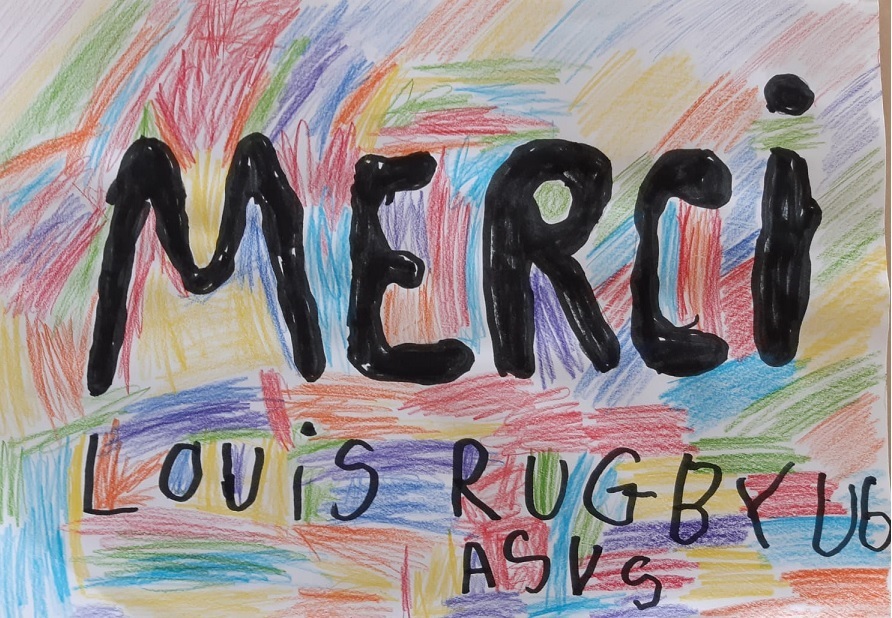 MERCi
LOUiS RUGBY U6
ASVS